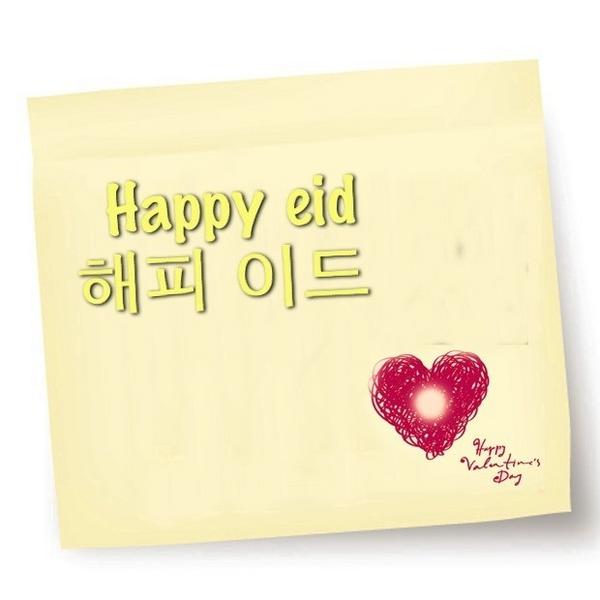 Happy eid
해피 이드
Happy
Valentine's
Day